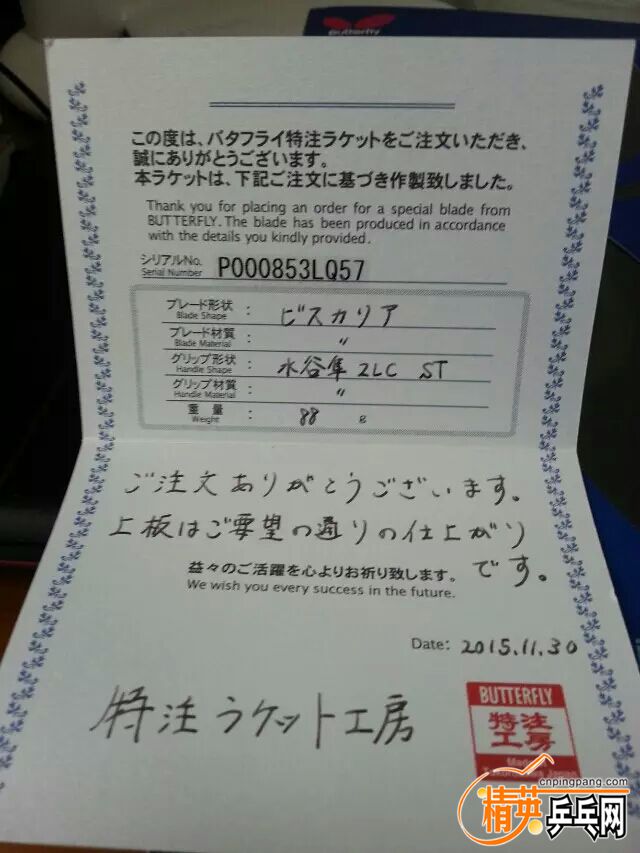 Butterfly
この度は、バタフライ特注ラケットをご注文いただき、
誠にありがとうございます。
本ラケットは、下記ご注文に基づき作製致しました。
Thank you for placing an order for a special blade from
BUTTERFLY. The blade has been produced in accordance
with the details you kindly provided.
シリアルNo.
Serial Number
P000853LQ57
ブレード形状
Blade Shape
: ビスカリア
ブレード材質
Blade Material
: 〃
グリップ形状
Handle Shape
: 水谷隼 ZLC ST
グリップ材質
Handle Material
: 〃
重量
Weight
: 88 g
ご注文ありがとうございます。
上板はご要望の通りの仕上がり
です。
益々のご活躍を心よりお祈り致します。
We wish you every success in the future.
Date: 2015.11.30
特注ラケット工房
BUTTERFLY
特注
工房
Made
Japan
cnpingpang.com
精英乒乓网